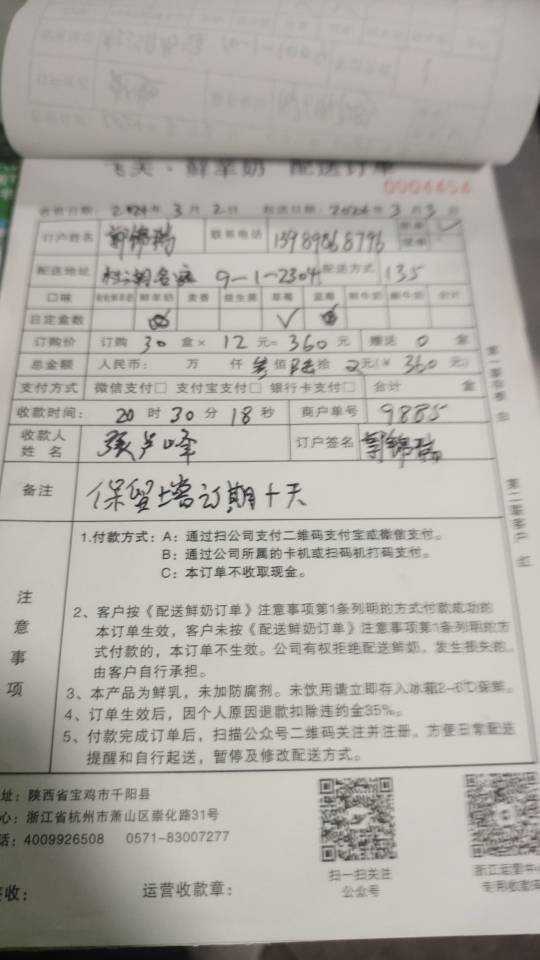 飞天·鲜羊奶 配送订单
0004454
收款日期: 2024年 3月 2日 起送日期: 2024年 3月 3日
订户姓名 郭锦瑞 联系电话 13989868796
配送地址 9-1-2304 配送方式 135
口味 鲜羊奶 麦香 益生菌 草莓 蓝莓 合计
日定盒数 √
订购价 订购 30 盒× 12 元= 360 元 赠送 0 盒
总金额 人民币: 万 仟 叁 佰 陆 拾 元(¥ 360 元)
支付方式 微信支付□ 支付宝支付□ 银行卡支付□ 合计 盒
收款时间: 20 时 30 分 18 秒 商户单号 9885
收款人姓名 张芦峰 订户签名 郭锦瑞
备注 保留增订期十天
注意事项
1.付款方式: A: 通过扫公司支付二维码支付宝或微信支付。
B: 通过公司所属的卡机或扫码机打码支付。
C: 本订单不收取现金。
2、客户按《配送鲜奶订单》注意事项第1条列明的方式付款成功的
本订单生效,客户未按《配送鲜奶订单》注意事项第1条列明的方
式付款的,本订单不生效。公司有权拒绝配送鲜奶,发生损失的,
由客户自行承担。
3、本产品为鲜乳,未加防腐剂。未饮用请立即存入冰箱2-6℃保鲜。
4、订单生效后,因个人原因退款扣除违约金35%。
5、付款完成订单后,扫描公众号二维码关注并注册,方便日常配送
提醒和自行起送,暂停及修改配送方式。
址: 陕西省宝鸡市千阳县
心: 浙江省杭州市萧山区崇化路31号
话: 4009926508 0571-83007277
扫一扫关注
公众号
浙江运营中心
专用收款码
签收: 运营收款章:
第二联客户